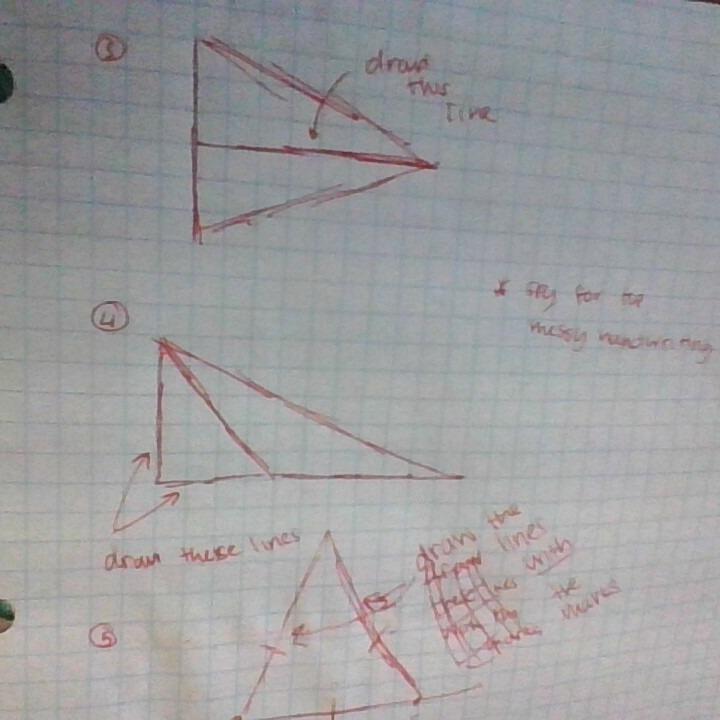 ③
draw
this
line
④
* sry for the
messy handwriting
draw these lines
draw the
lines
with
the
marks
⑤